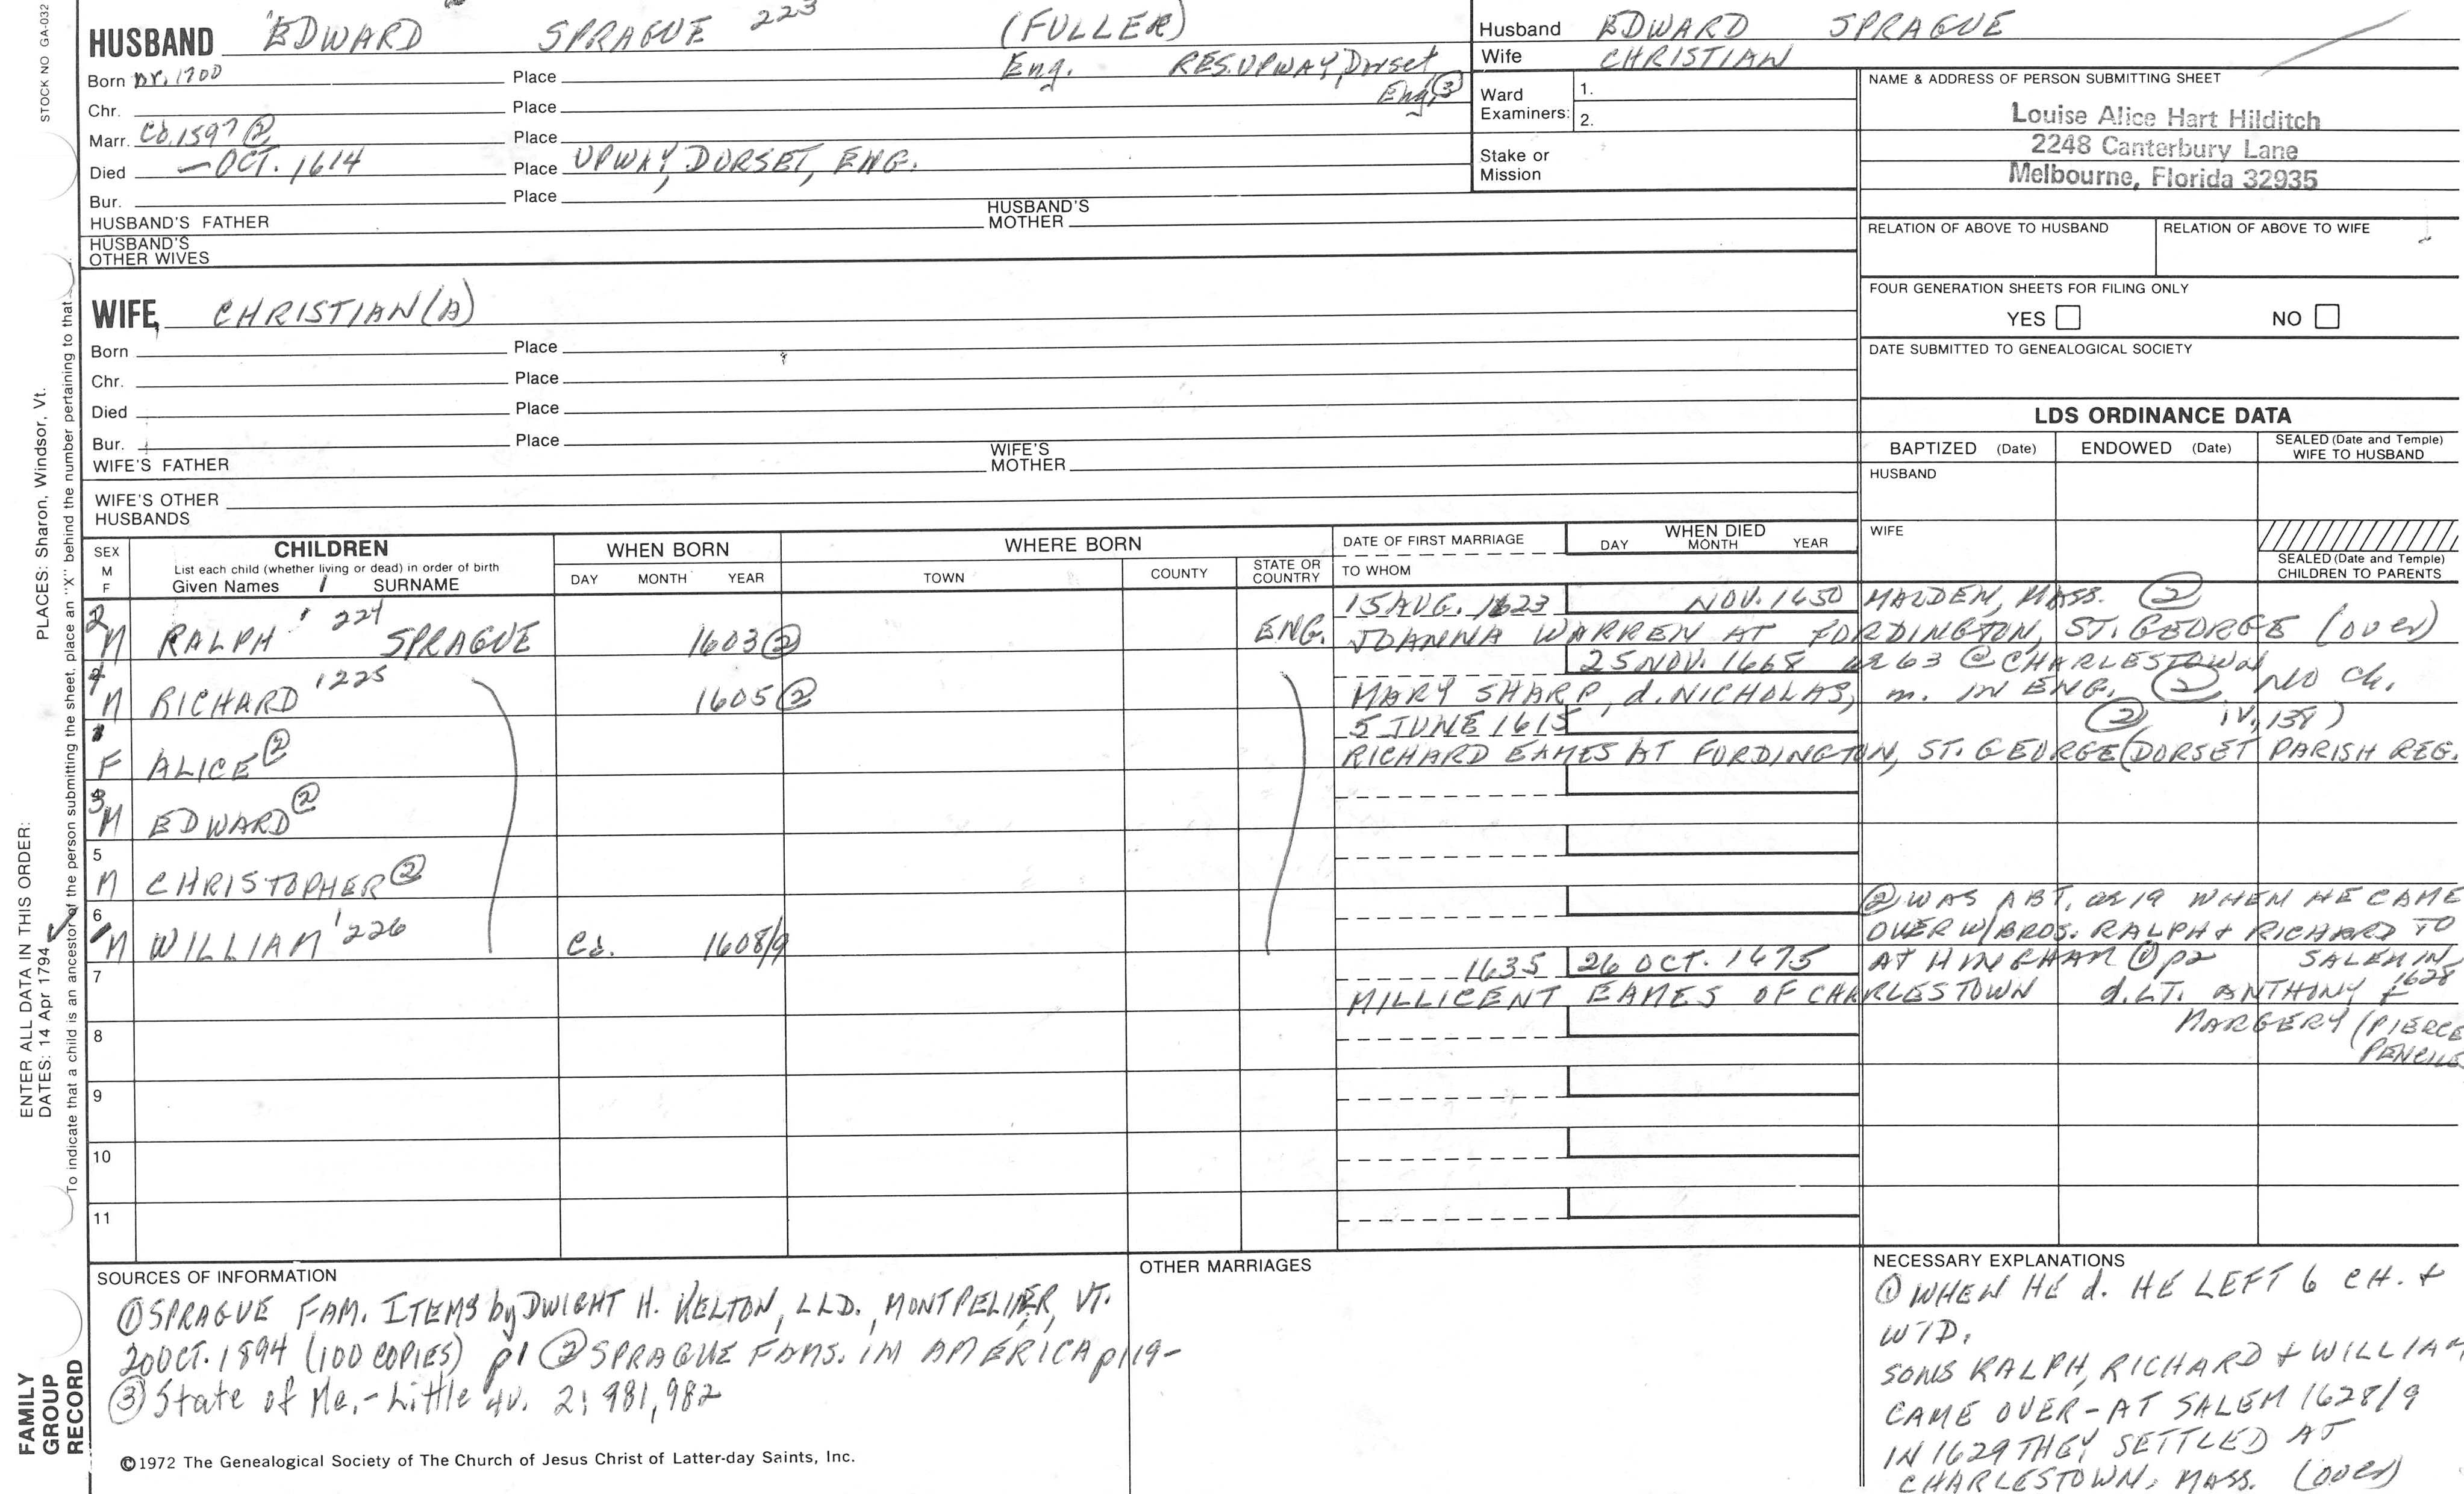 STOCK NO GA-032
HUSBAND EDWARD SPRAGUE 223 (FULLER)
Born 1700 Place Eng. RES. UPWAY, Dorset
Chr. Place Eng. ③
Marr. Ca. 1597 ② Place
Died —OCT. 1614 Place UPWAY, DORSET, ENG.
Bur. Place
HUSBAND'S FATHER HUSBAND'S MOTHER
HUSBAND'S OTHER WIVES
Husband EDWARD SPRAGUE
Wife CHRISTIAN
Ward Examiners: 1.
2.
Stake or Mission
NAME & ADDRESS OF PERSON SUBMITTING SHEET
Louise Alice Hart Hilditch
2248 Canterbury Lane
Melbourne, Florida 32935
RELATION OF ABOVE TO HUSBAND RELATION OF ABOVE TO WIFE
FOUR GENERATION SHEETS FOR FILING ONLY
YES NO
DATE SUBMITTED TO GENEALOGICAL SOCIETY
WIFE CHRISTIAN(A)
Born Place
Chr. Place
Died Place
Bur. Place
WIFE'S FATHER WIFE'S MOTHER
WIFE'S OTHER HUSBANDS
LDS ORDINANCE DATA
BAPTIZED (Date) ENDOWED (Date) SEALED (Date and Temple) WIFE TO HUSBAND
HUSBAND
WIFE
SEALED (Date and Temple) CHILDREN TO PARENTS
SEX M F
CHILDREN
List each child (whether living or dead) in order of birth
Given Names SURNAME
WHEN BORN
DAY MONTH YEAR
WHERE BORN
TOWN COUNTY STATE OR COUNTRY
DATE OF FIRST MARRIAGE
TO WHOM
WHEN DIED
DAY MONTH YEAR
15 AUG. 1623 NOV. 1650 MALDEN, MASS. ②
2 M RALPH 224 SPRAGUE 1603 ② ENG. JOANNA WARREN AT FORDINGTON, ST. GEORGE (over)
25 NOV. 1668 ae 63 @ CHARLESTOWN
4 M RICHARD 225 1605 ② MARY SHARP, d. NICHOLAS, m. IN ENG. ② NO Ch.
5 JUNE 1615 ② iv, 138)
1 F ALICE ② RICHARD EAMES AT FORDINGTON, ST. GEORGE (DORSET PARISH REG.
3 M EDWARD ②
5 M CHRISTOPHER ②
② WAS ABT. ae 19 WHEN HE CAME
OVER W/ BROS. RALPH & RICHARD TO
SALEM IN 1628
6 M WILLIAM 226 Ca. 1608/9
1635 26 OCT. 1675 AT HINGHAM ① p2
MILLICENT EAMES OF CHARLESTOWN d. LT. ANTHONY &
MARGERY (PIERCE
7
8
9
10
11
SOURCES OF INFORMATION
① SPRAGUE FAM. ITEMS by DWIGHT H. KELTON, LLD., MONTPELIER, VT.
20 OCT. 1894 (100 COPIES) p1 ② SPRAGUE FAMS. IM AMERICA p119-
③ State of Me.-Little 4v. 2: 981, 982
OTHER MARRIAGES
NECESSARY EXPLANATIONS
① WHEN HE d. HE LEFT 6 CH. &
WID.
SONS RALPH, RICHARD & WILLIAM
CAME OVER - AT SALEM 1628/9
IN 1629 THEY SETTLED AT
CHARLESTOWN, MASS. (over)
©1972 The Genealogical Society of The Church of Jesus Christ of Latter-day Saints, Inc.
ENTER ALL DATA IN THIS ORDER:
DATES: 14 Apr 1794 PLACES: Sharon, Windsor, Vt.
To indicate that a child is an ancestor of the person submitting the sheet, place an "X" behind the number pertaining to that
FAMILY
GROUP
RECORD